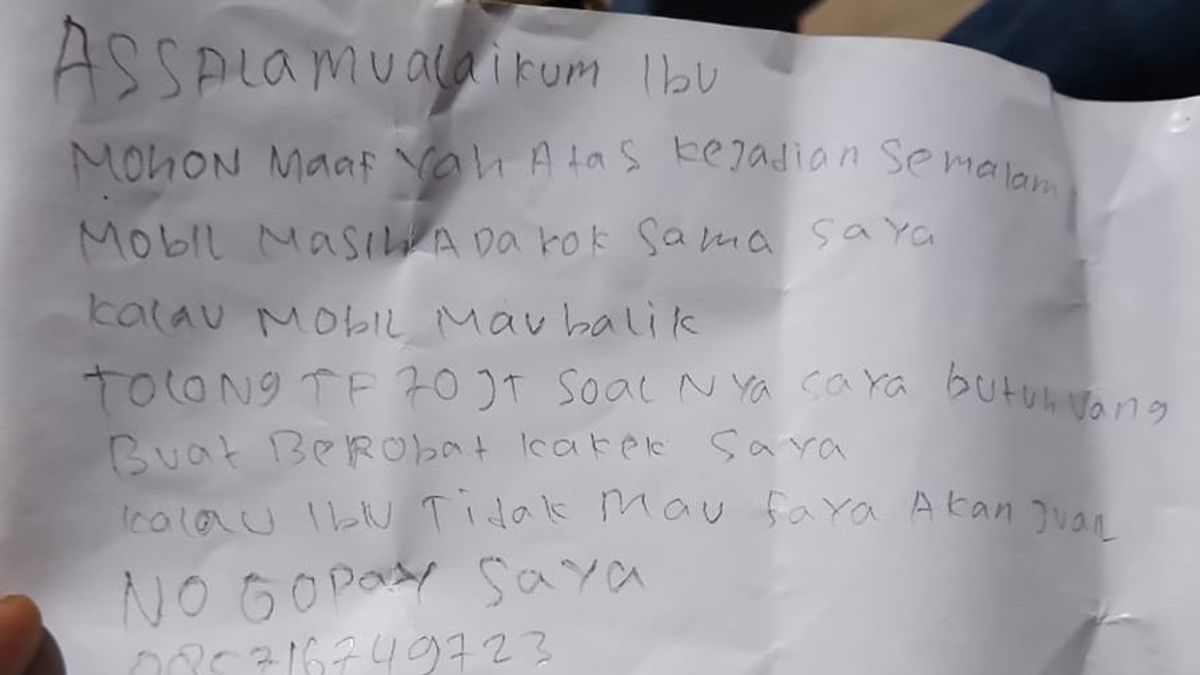 ASSALAMUALAIKUM IBU
MOHON MAAF YAH ATAS KEJADIAN SEMALAM
MOBIL MASIH ADA KOK SAMA SAYA
KALAU MOBIL MAU BALIK
TOLONG TF 70 JT SOAL NYA SAYA BUTUH UANG
BUAT BEROBAT KAKEK SAYA
KALAU IBU TIDAK MAU SAYA AKAN JUAL
NO GOPAY SAYA
085716749723